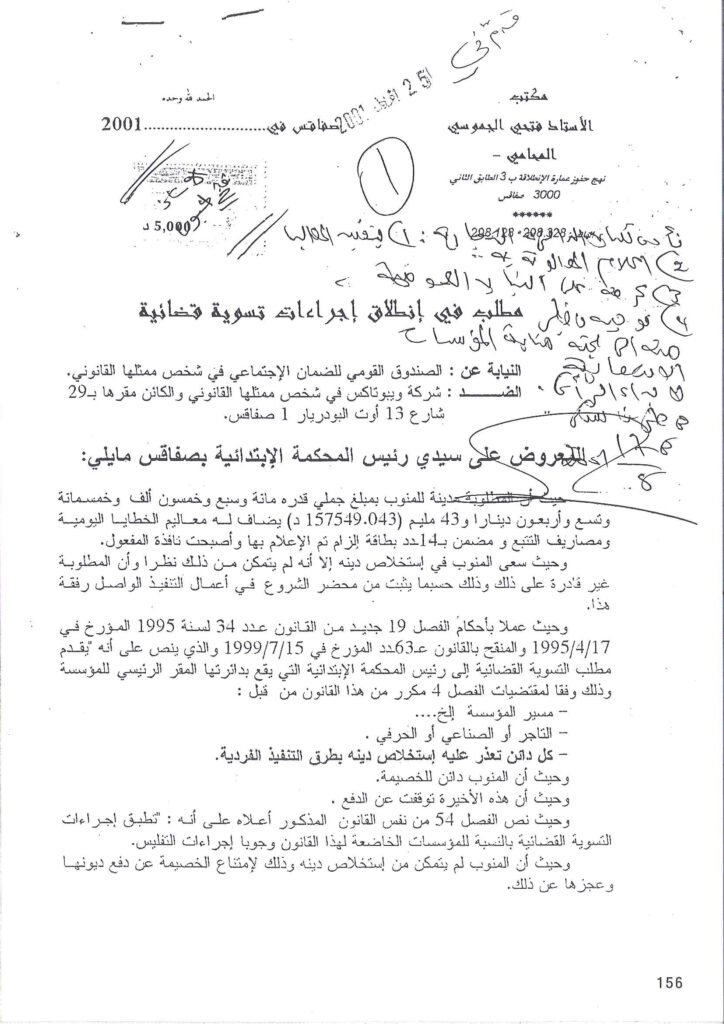 قدم في
25 افريل 2001
الحمد لله وحده
صفاقس في......................2001
مكتب
الأستاذ فتحي الجموسي
المحامي -
نهج حفوز عمارة الإنطلاقة ب 3 الطابق الثاني
3000 صفاقس
******
208.128 - 208.328
5,000 د
1
مطلب في إنطلاق إجراءات تسوية قضائية
النيابة عن : الصندوق القومي للضمان الإجتماعي في شخص ممثلها القانوني.
الضــــد : شركة ويبوتاكس في شخص ممثلها القانوني والكائن مقرها بـ29
شارع 13 أوت البودريار 1 صفاقس.
المعروض على سيدي رئيس المحكمة الإبتدائية بصفاقس مايلي:
حيث أن المطلوبة مدينة للمنوب بمبلغ جملي قدره مائة وسبع وخمسون ألف وخمسمائة
وتسع وأربعون دينارا و43 مليم (157549.043 د) يضاف له معاليم الخطايا اليومية
ومصاريف التتبع و مضمن بـ14ـدد بطاقة إلزام تم الإعلام بها وأصبحت نافذة المفعول.
وحيث سعى المنوب في إستخلاص دينه إلا أنه لم يتمكن من ذلك نظرا وأن المطلوبة
غير قادرة على ذلك وذلك حسبما يثبت من محضر الشروع في أعمال التنفيذ الواصل رفقة
هذا.
وحيث عملا بأحكام الفصل 19 جديد من القانون عدد 34 لسنة 1995 المؤرخ في
1995/4/17 والمنقح بالقانون عـ63ـدد المؤرخ في 1999/7/15 والذي ينص على أنه "يقدم
مطلب التسوية القضائية إلى رئيس المحكمة الإبتدائية التي يقع بدائرتها المقر الرئيسي للمؤسسة
وذلك وفقا لمقتضيات الفصل 4 مكرر من هذا القانون من قبل :
- مسير المؤسسة إلخ....
- التاجر أو الصناعي أو الحرفي .
- كل دائن تعذر عليه إستخلاص دينه بطرق التنفيذ الفردية.
وحيث أن المنوب دائن للخصيمة.
وحيث أن هذه الأخيرة توقفت عن الدفع .
وحيث نص الفصل 54 من نفس القانون المذكور أعلاه على أنه : "تطبق إجراءات
التسوية القضائية بالنسبة للمؤسسات الخاضعة لهذا القانون وجوبا إجراءات التفليس.
وحيث أن المنوب لم يتمكن من إستخلاص دينه وذلك لإمتناع الخصيمة عن دفع ديونها
وعجزها عن ذلك.
156